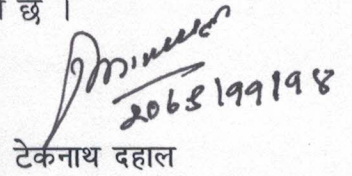 छ ।
२०६९।११।१४
टेकनाथ दहाल